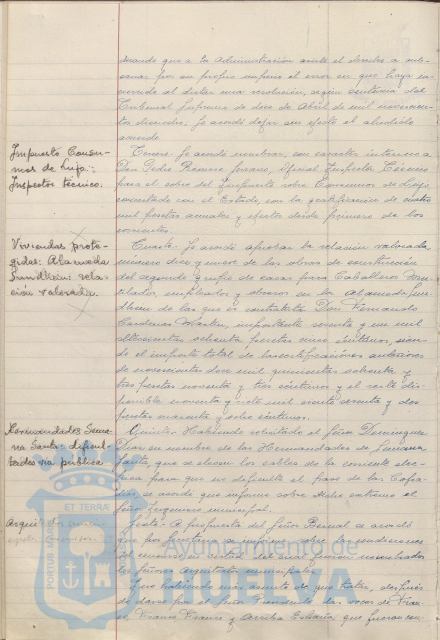 derando que a la Administración asiste el derecho a sub-
sanar por su propio imperio el error en que haya in-
currido al dictar una resolución, según sentencia del
Tribunal Supremo de doce de Abril de mil novecien-
ta dieciocho. Se acordó dejar sin efecto el aludido
acuerdo.
Impuesto Consu-
mos de Lujo:
Inspector técnico.
Tercero. Se acordó nombrar, con carácter interino a
Don Pedro Romero, Oficial Inspector Técnico
para el cobro del Impuesto sobre Consumos de Lujo
concertado con el Estado, con la gratificación de cuatro
mil pesetas anuales y efectos desde primero de los
corrientes.
Viviendas prote-
gidas: Alameda
Sundheim rela-
ción valorada.
Cuarto. Se acordó aprobar la relación valorada
número diez y nueve de las obras de construcción
del segundo grupo de casas para Caballeros Mu-
tilados, empleados y obreros en la Alameda Sund-
heim de las que es contratista Don Fernando
Cárdenas Martín, importante sesenta y un mil
ochocientas ochenta pesetas once céntimos, sien-
do el importe total de las certificaciones anteriores
de novecientas doce mil quinientas ochenta y
tres pesetas noventa y tres céntimos y el saldo dis-
ponible noventa y ocho mil ciento sesenta y dos
pesetas cuarenta y ocho céntimos.
Hermandades Sema-
na Santa: dificul-
tades vía pública
Quinto. Habiendo solicitado el Señor Domínguez
en nombre de las Hermandades de Semana
Santa, que se eleven los cables de la corriente eléc-
trica para que no dificulte el paso de las Cofra-
días, se acordó que informe sobre dicho extremo el
Señor Ingeniero municipal.
Sexto. A propuesta del Señor Bernal se acordó
que por Secretaría se informe sobre las condiciones
del en que fueron nombrados
los Señores Arquitectos municipales.
Y no habiendo más asuntos de que tratar, después
de darse por el Señor Presidente las voces de Viva
Franco y Arriba España, que fueron con-
ET TERRÆ
PORTUS
Ayuntamiento de
HUELVA